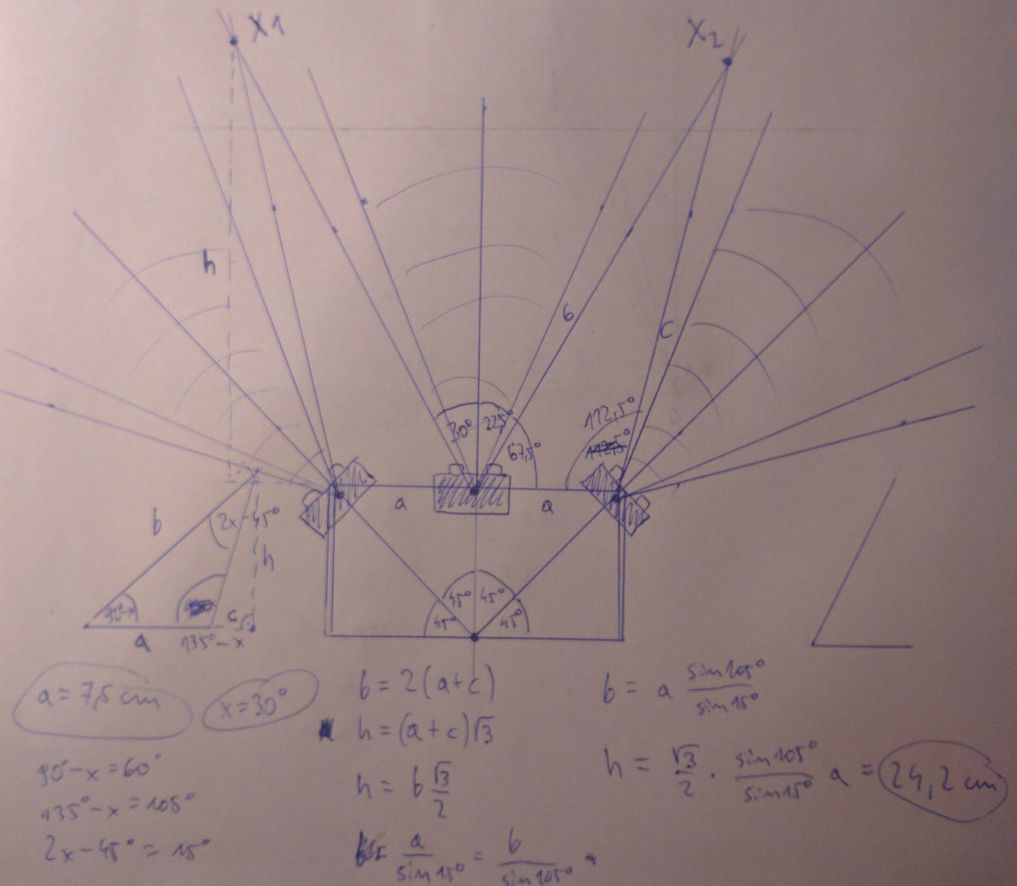 X1
X2
h
b
c
30° 22,5°
67,5°
112,5°
a
a
b
2x-45°
h
90°-x
c
a
135°-x
45° 45°
45° 45°
a = 7,5 cm
x = 30°
90°-x = 60°
135°-x = 105°
2x-45° = 15°
b = 2(a+c)
h = (a+c)√3
h = b √3/2
a/sin15° = b/sin105°
b = a sin105°/sin15°
h = √3/2 · sin105°/sin15° a = 24,2 cm